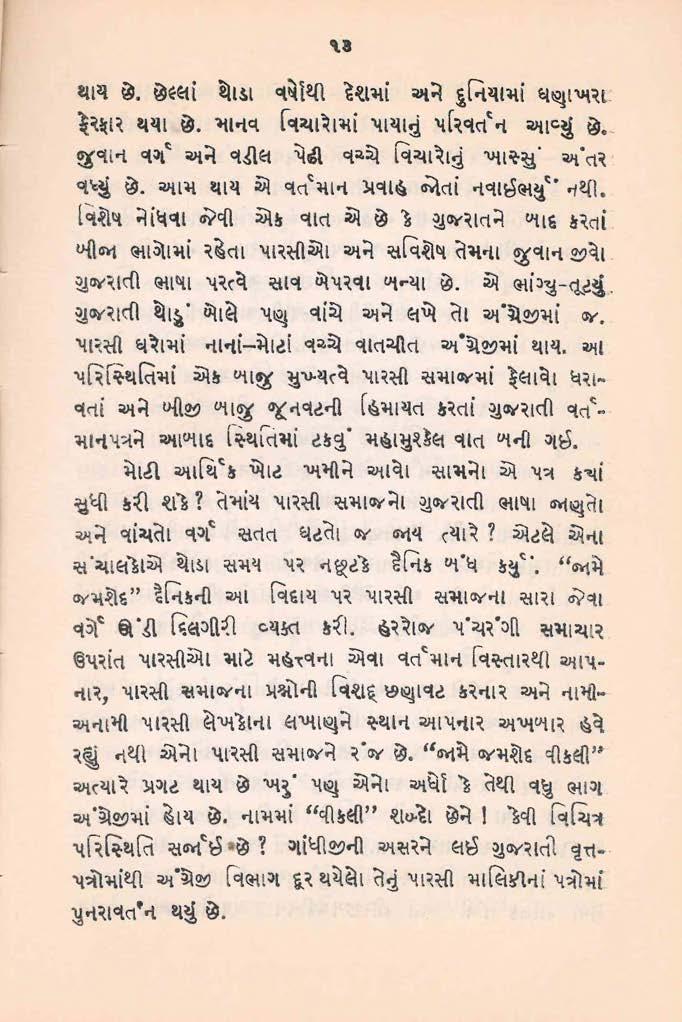 ૧૩
થાય છે. છેલ્લાં થોડા વર્ષોથી દેશમાં અને દુનિયામાં ઘણાખરા
ફેરફાર થયા છે. માનવ વિચારોમાં પાયાનું પરિવર્તન આવ્યું છે.
જુવાન વર્ગ અને વડીલ પેઢી વચ્ચે વિચારોનું ખાસ્સું અંતર
વધ્યું છે. આમ થાય એ વર્તમાન પ્રવાહ જોતાં નવાઈભર્યું નથી.
વિશેષ નોંધવા જેવી એક વાત એ છે કે ગુજરાતને બાદ કરતાં
બીજા ભાગોમાં રહેતા પારસીઓ અને સવિશેષ તેમના જુવાન જીવો
ગુજરાતી ભાષા પરત્વે સાવ બેપરવા બન્યા છે. એ ભાંગ્યુ-તૂટયું
ગુજરાતી થોડું બોલે પણ વાંચે અને લખે તો અંગ્રેજીમાં જ.
પારસી ઘરોમાં નાનાં–મોટાં વચ્ચે વાતચીત અંગ્રેજીમાં થાય. આ
પરિસ્થિતિમાં એક બાજુ મુખ્યત્વે પારસી સમાજમાં ફેલાવો ધરા-
વતાં અને બીજી બાજુ જૂનવટની હિમાયત કરતાં ગુજરાતી વર્ત-
માનપત્રને આબાદ સ્થિતિમાં ટકવું મહામુશ્કેલ વાત બની ગઈ.
મોટી આર્થિક ખોટ ખમીને આવો સામનો એ પત્ર કયાં
સુધી કરી શકે? તેમાંય પારસી સમાજનો ગુજરાતી ભાષા જાણતો
અને વાંચતો વર્ગ સતત ઘટતો જ જાય ત્યારે? એટલે એના
સંચાલકોએ થોડા સમય પર નછૂટકે દૈનિક બંધ કર્યું. “જામે
જમશેદ” દૈનિકની આ વિદાય પર પારસી સમાજના સારા જેવા
વર્ગે ઊંડી દિલગીરી વ્યક્ત કરી. હરરોજ પંચરંગી સમાચાર
ઉપરાંત પારસીઓ માટે મહત્ત્વના એવા વર્તમાન વિસ્તારથી આપ-
નાર, પારસી સમાજના પ્રશ્નોની વિશદ્ છણાવટ કરનાર અને નામી-
અનામી પારસી લેખકોના લખાણને સ્થાન આપનાર અખબાર હવે
રહ્યું નથી એનો પારસી સમાજને રંજ છે. “જામે જમશેદ વીકલી”
અત્યારે પ્રગટ થાય છે ખરું પણ એનો અર્ધો કે તેથી વધુ ભાગ
અંગ્રેજીમાં હોય છે. નામમાં “વીકલી” શબ્દો છેને! કેવી વિચિત્ર
પરિસ્થિતિ સર્જાઈ છે? ગાંધીજીની અસરને લઈ ગુજરાતી વૃત્ત-
પત્રોમાંથી અંગ્રેજી વિભાગ દૂર થયેલો તેનું પારસી માલિકીનાં પત્રોમાં
પુનરાવર્તન થયું છે.